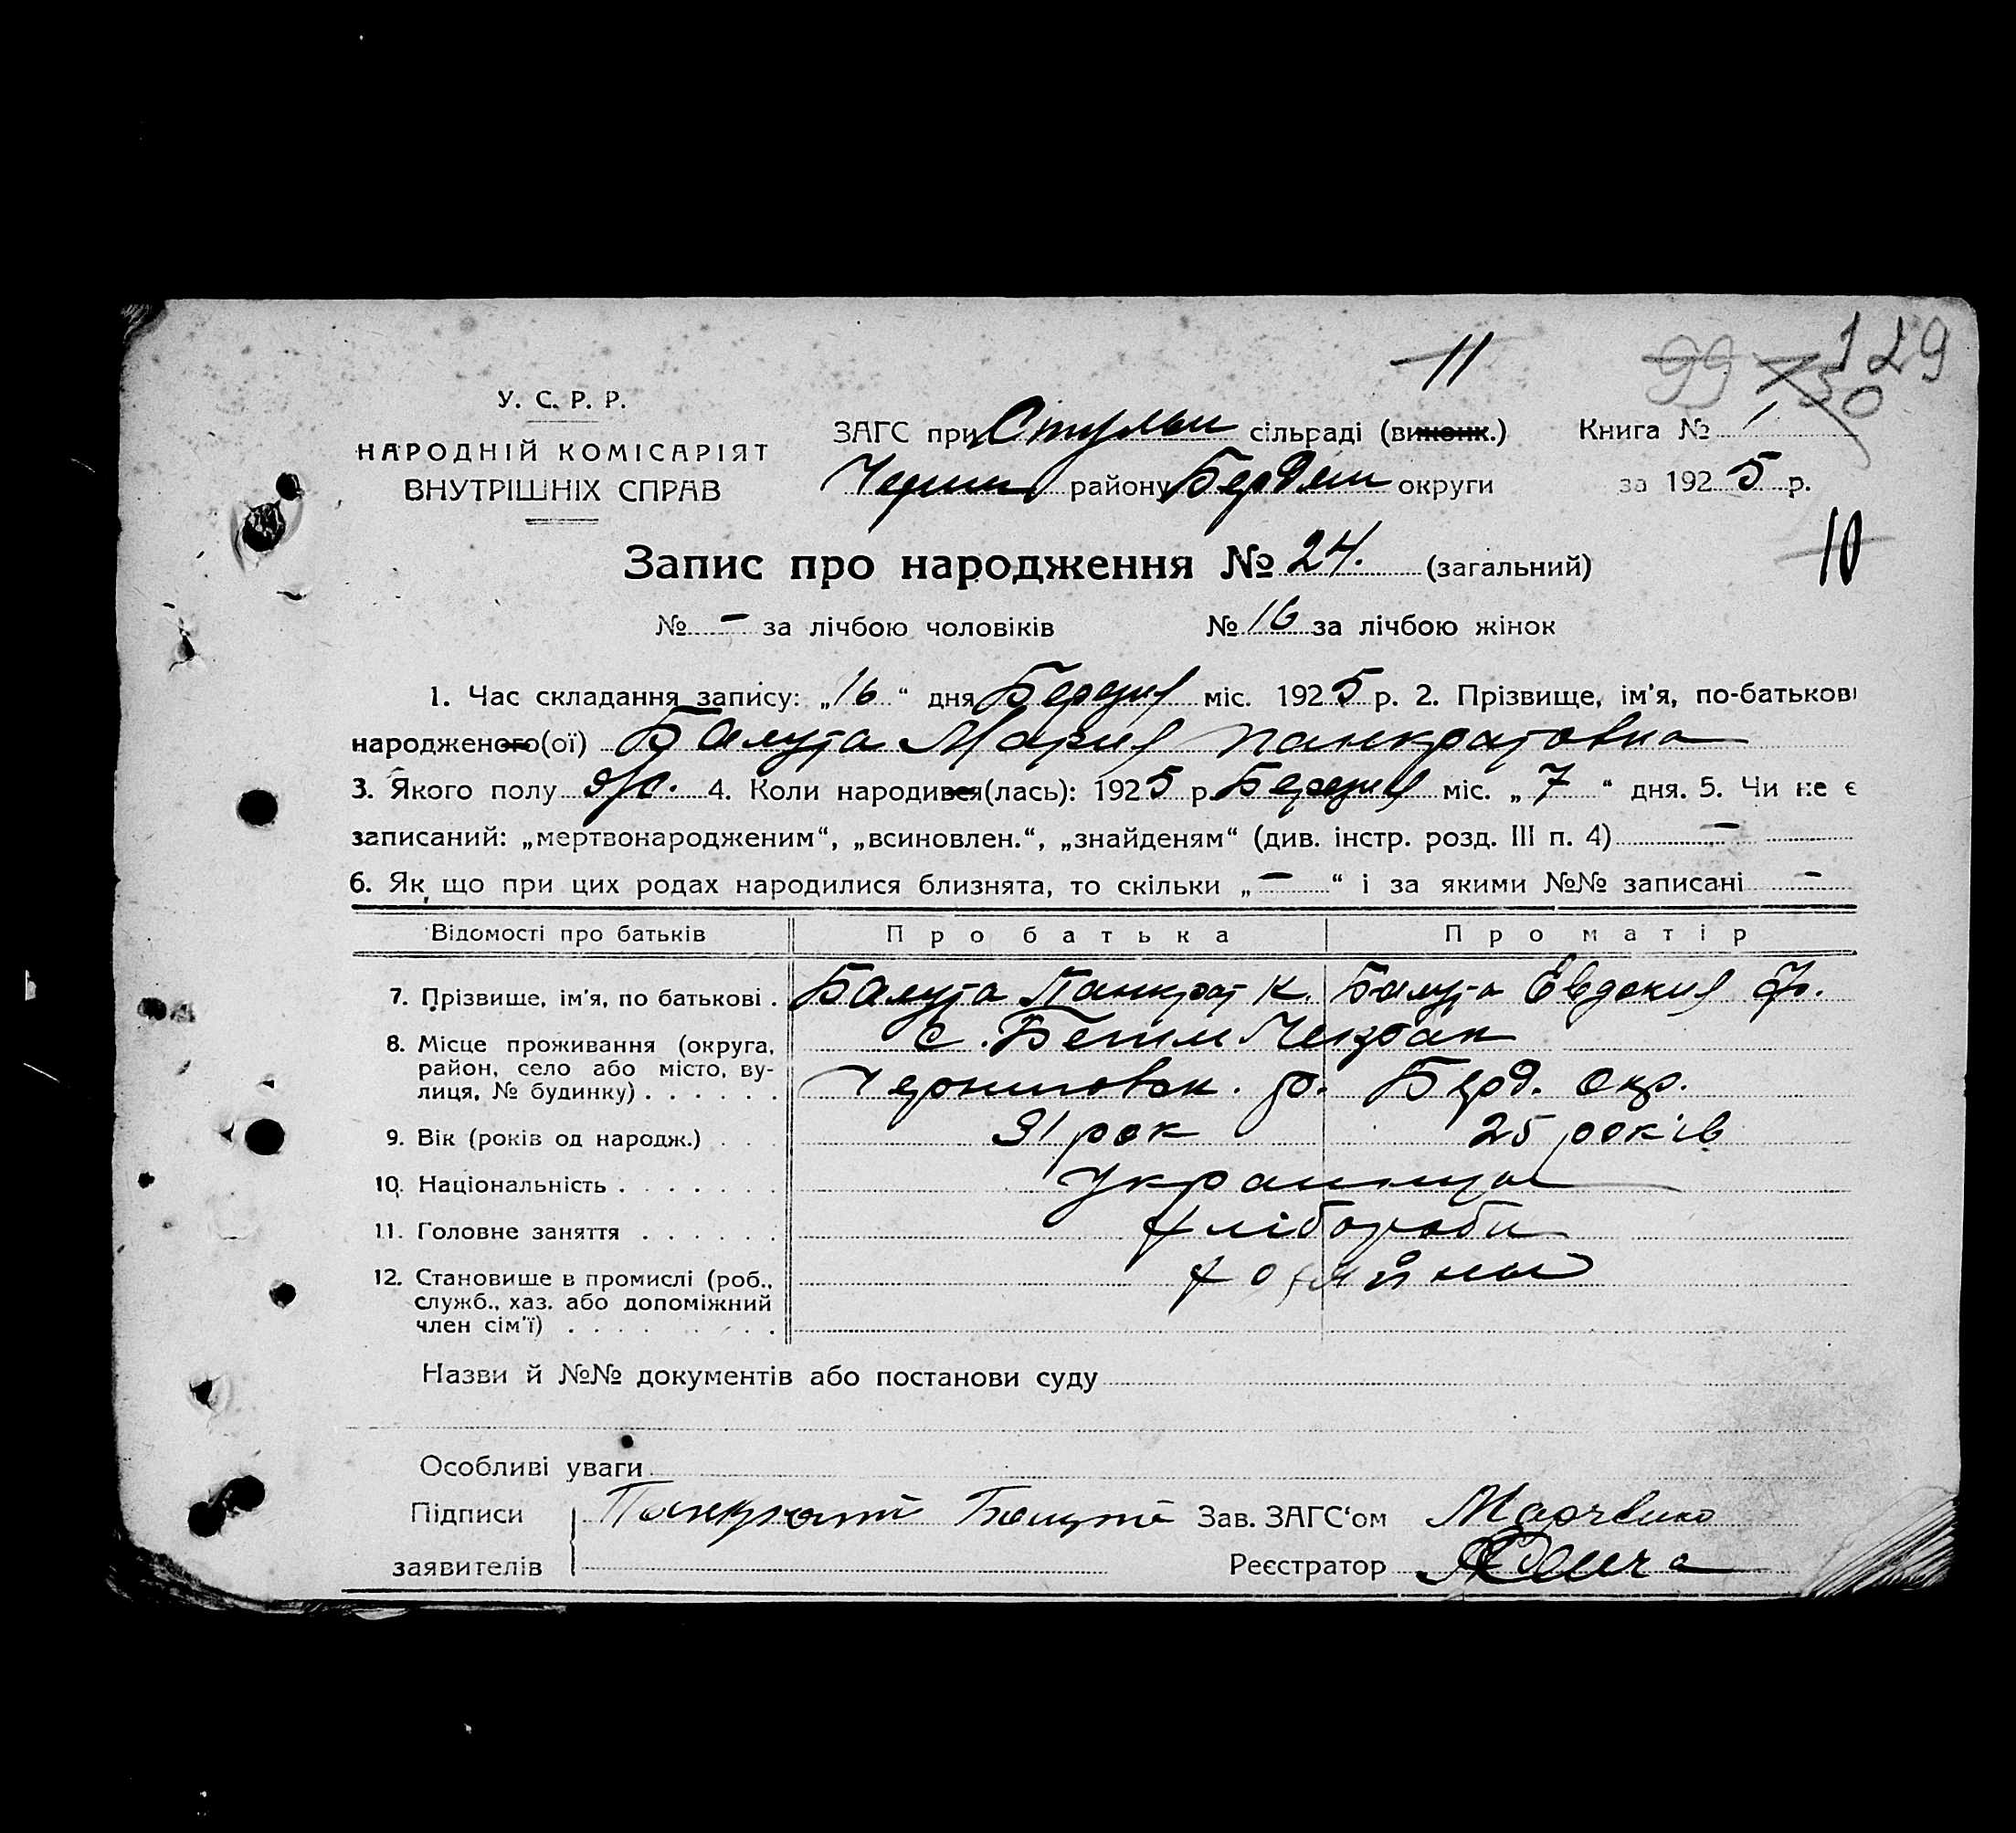 11
99 129
50
У. С. Р. Р.
НАРОДНІЙ КОМІСАРІЯТ
ВНУТРІШНІХ СПРАВ
ЗАГС при сільраді (виконк.) Книга № 1
району Бердян округи за 1925 р.
10
Запис про народження № 24. (загальний)
№ - за лічбою чоловіків № 16 за лічбою жінок
1. Час складання запису: „16“ дня Березня міс. 1925 р. 2. Прізвище, ім'я, по-батькові
народженого(ої) Балута Мария Панкратовна
3. Якого полу ж. 4. Коли народився(лась): 1925 р. Березня міс. „7“ дня. 5. Чи не є
записаний: „мертвонародженим“, „всиновлен.“, „знайденям“ (див. інстр. розд. III п. 4) -
6. Як що при цих родах народилися близнята, то скільки „-“ і за якими №№ записані -
Відомості про батьків Про батька Про матір
7. Прізвище, ім'я, по батькові . Балута Панкрат К. Балута Евдокия Ф.
8. Місце проживання (округа, район, село або місто, вулиця, № будинку) . . . . . . с. Бегим Чокрак
Черниговск. р. Берд. окр.
9. Вік (років од народж.) . . . 31 рок 25 років
10. Національність . . . . . . . Украинцы
11. Головне заняття . . . . . . хлібороби
12. Становище в промислі (роб., служб., хаз. або допоміжний член сім'ї) . . . . . . . хозяйны
Назви й №№ документів або постанови суду
Особливі уваги
Підписи Панкрат Балута Зав. ЗАГС'ом Марченко
заявителів Реєстратор